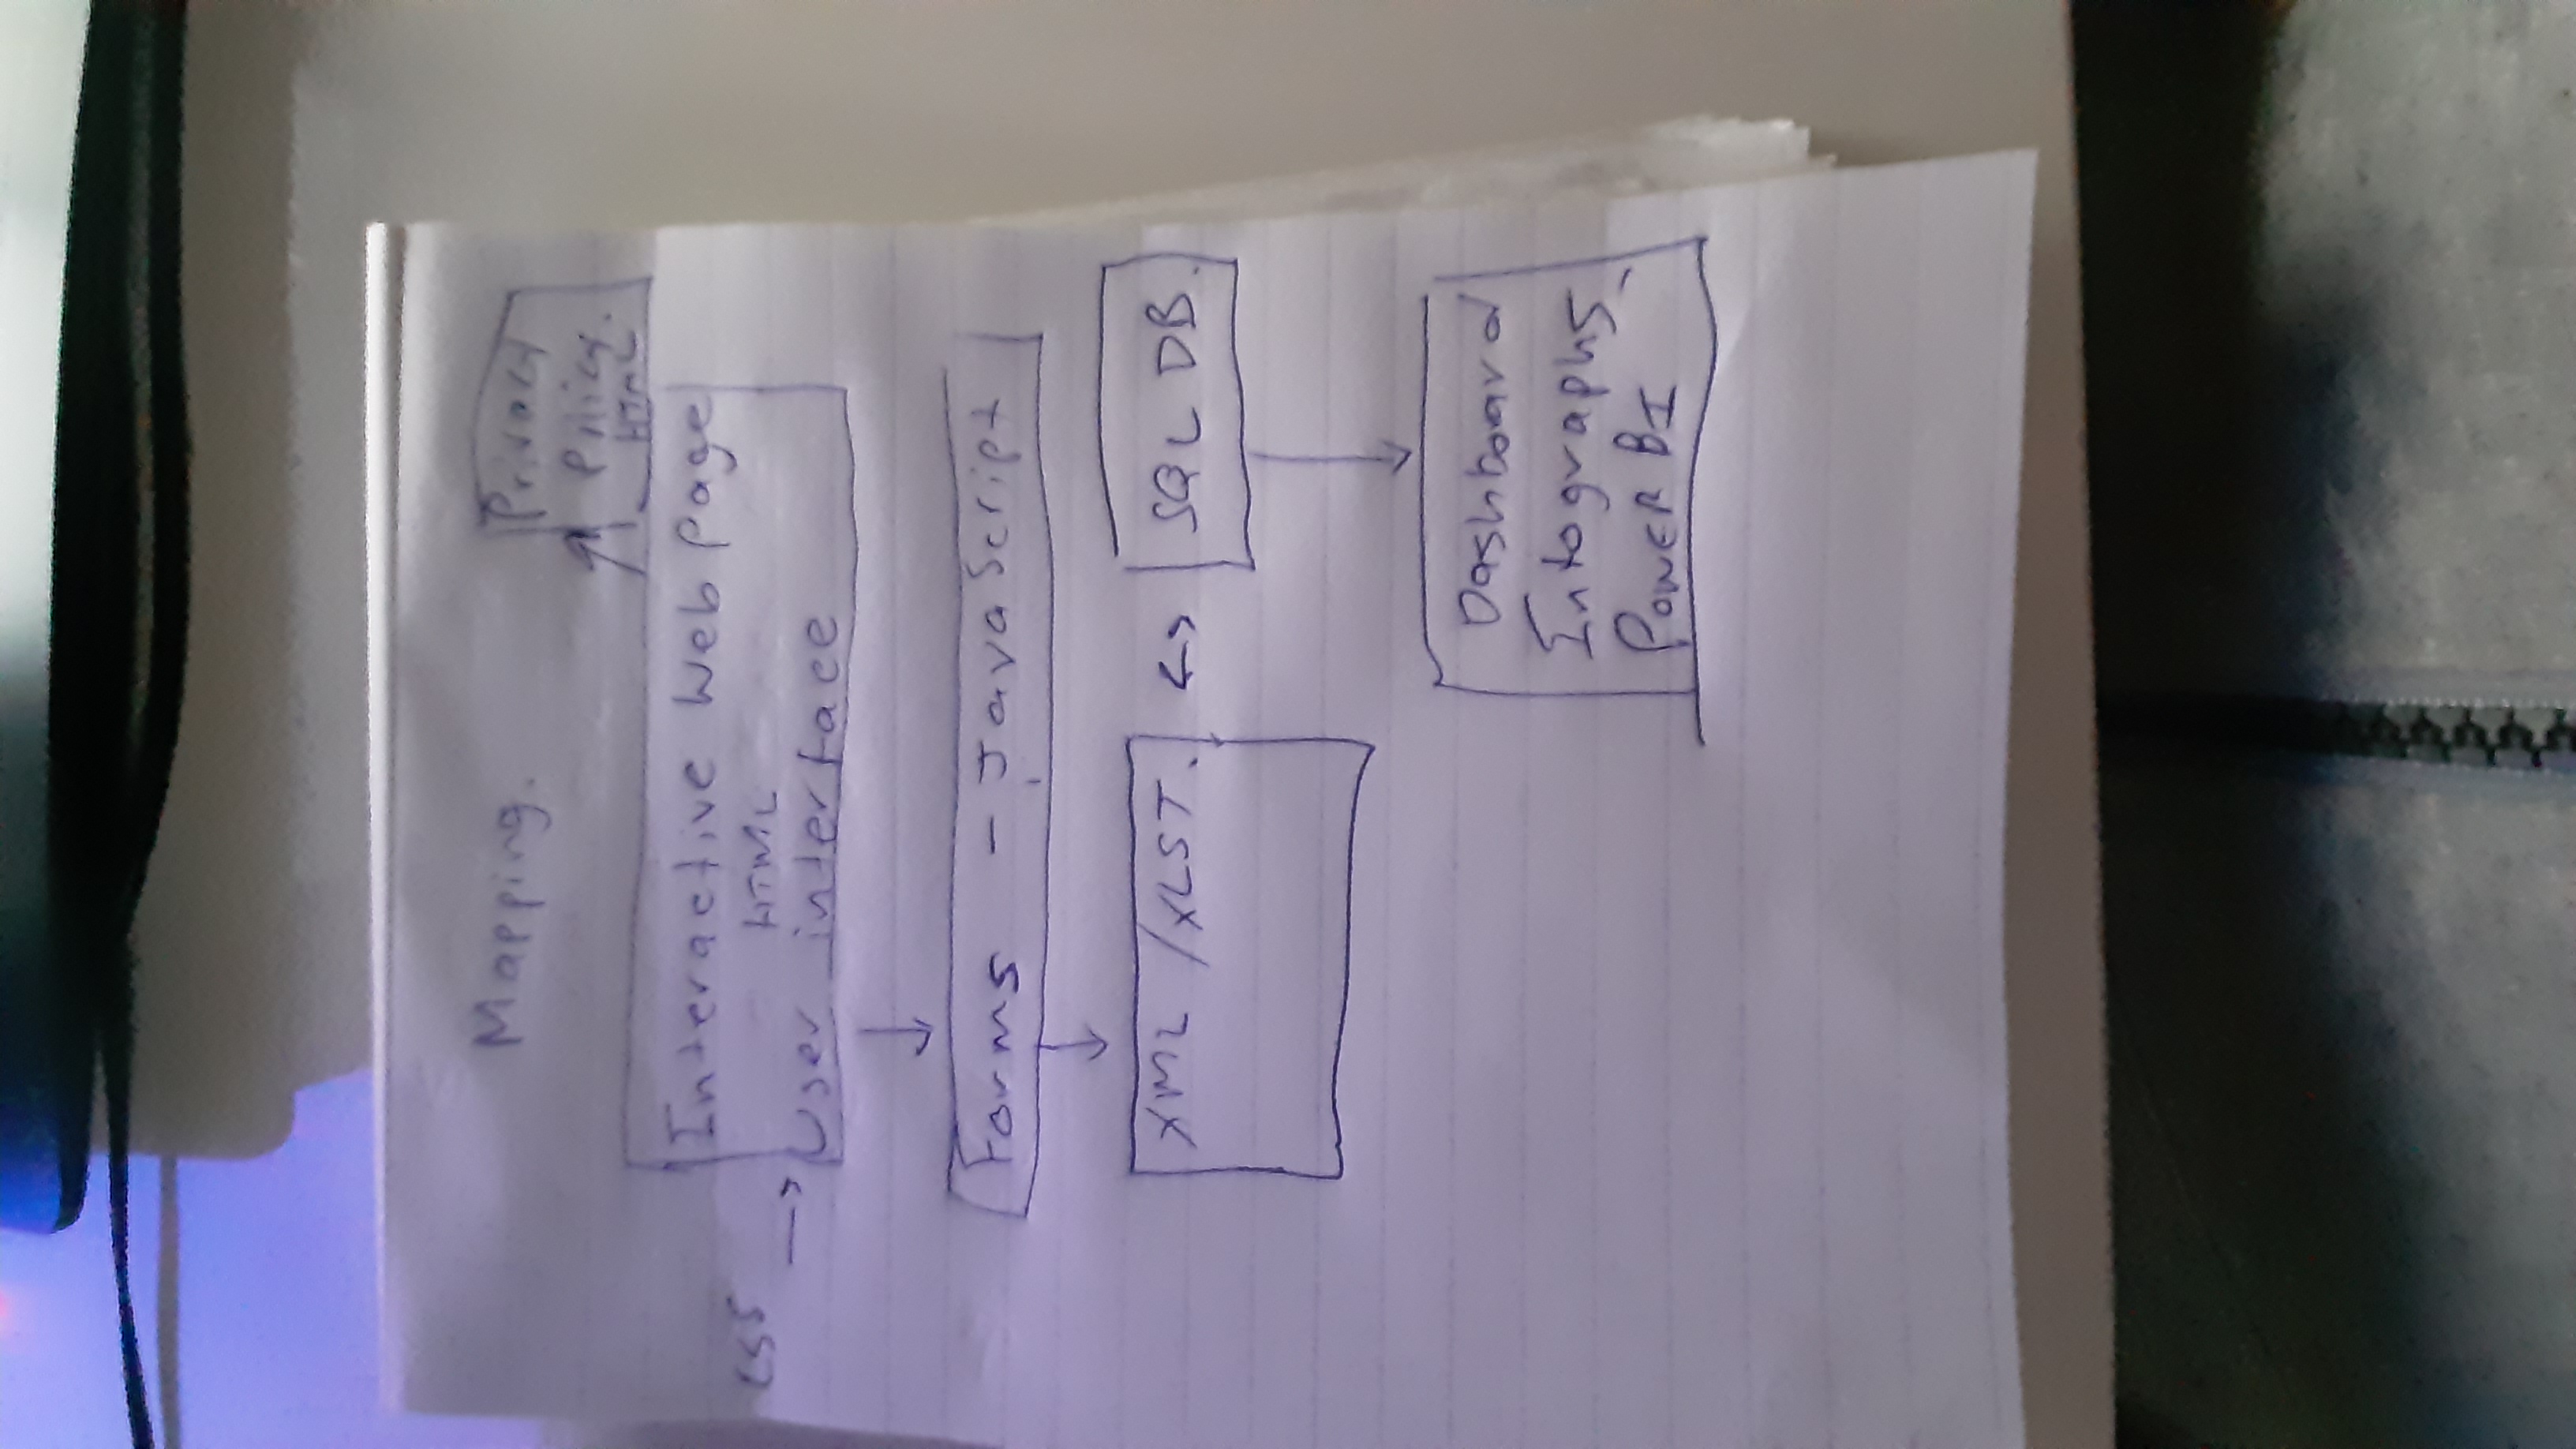 Mapping.
Privacy
Policy.
HTML
Interactive Web Page
HTML
CSS →
User interface
Forms - JavaScript
XML /XLST.
<->
SQL DB.
Dashboard
Intographs
POWER BI